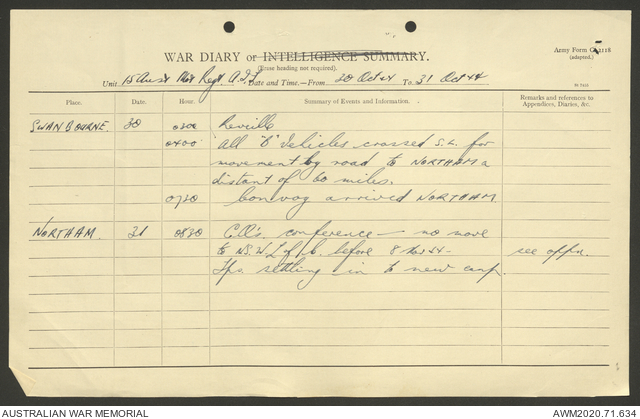 WAR DIARY or INTELLIGENCE SUMMARY.
(Erase heading not required).
Army Form C. 2118
(adapted.)
Unit 15 Aust Mot Regt. A.I.F. Date and Time.—From 30 Oct 44 To 31 Oct 44
Place. Date. Hour. Summary of Events and Information. Remarks and references to
Appendices, Diaries, &c.
SWANBOURNE. 30 0300 Reveille
0400 All "B" Vehicles crossed S.L. for
movement by road to NORTHAM a
distant of 60 miles.
0730 Convoy arrived NORTHAM.
NORTHAM. 31 0830 C.O's. conference — no move
to N.S.W. L of C. before 8 Nov 44 — see appx.
Tps. settling in to new camp.
AUSTRALIAN WAR MEMORIAL
AWM2020.71.634